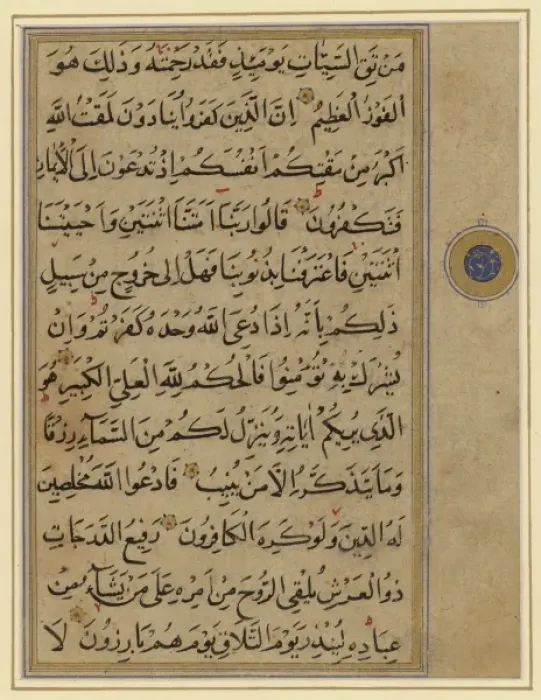 مَنْ تَقِ السَّيِّئَاتِ يَوْمَئِذٍ فَقَدْ رَحِمْتَهُ وَذَلِكَ هُوَ
الْفَوْزُ الْعَظِيمُ اِنَّ الَّذِينَ كَفَرُوا يُنَادَوْنَ لَمَقْتُ اللَّهِ
اَكْبَرُ مِنْ مَقْتِكُمْ اَنْفُسَكُمْ اِذْ تُدْعَوْنَ اِلَى الْاِيمَانِ
فَتَكْفُرُونَ قَالُوا رَبَّنَا اَمَتَّنَا اثْنَتَيْنِ وَاَحْيَيْتَنَا
اثْنَتَيْنِ فَاعْتَرَفْنَا بِذُنُوبِنَا فَهَلْ اِلَى خُرُوجٍ مِنْ سَبِيلٍ
ذَلِكُمْ بِأَنَّهُ اِذَا دُعِىَ اللَّهُ وَحْدَهُ كَفَرْتُمْ وَاِنْ
يُشْرَكْ بِهِ تُؤْمِنُوا فَالْحُكْمُ لِلَّهِ الْعَلِيِّ الْكَبِيرِ هُوَ
الَّذِي يُرِيكُمْ اٰيَاتِهِ وَيُنَزِّلُ لَكُمْ مِنَ السَّمَآءِ رِزْقًا
وَمَا يَتَذَكَّرُ اِلَّا مَنْ يُنِيبُ فَادْعُوا اللَّهَ مُخْلِصِينَ
لَهُ الدِّينَ وَلَوْ كَرِهَ الْكَافِرُونَ رَفِيعُ الدَّرَجَاتِ
ذُو الْعَرْشِ يُلْقِي الرُّوحَ مِنْ اَمْرِهِ عَلَى مَنْ يَشَآءُ مِنْ
عِبَادِهِ لِيُنْذِرَ يَوْمَ التَّلَاقِ يَوْمَ هُمْ بَارِزُونَ لَا